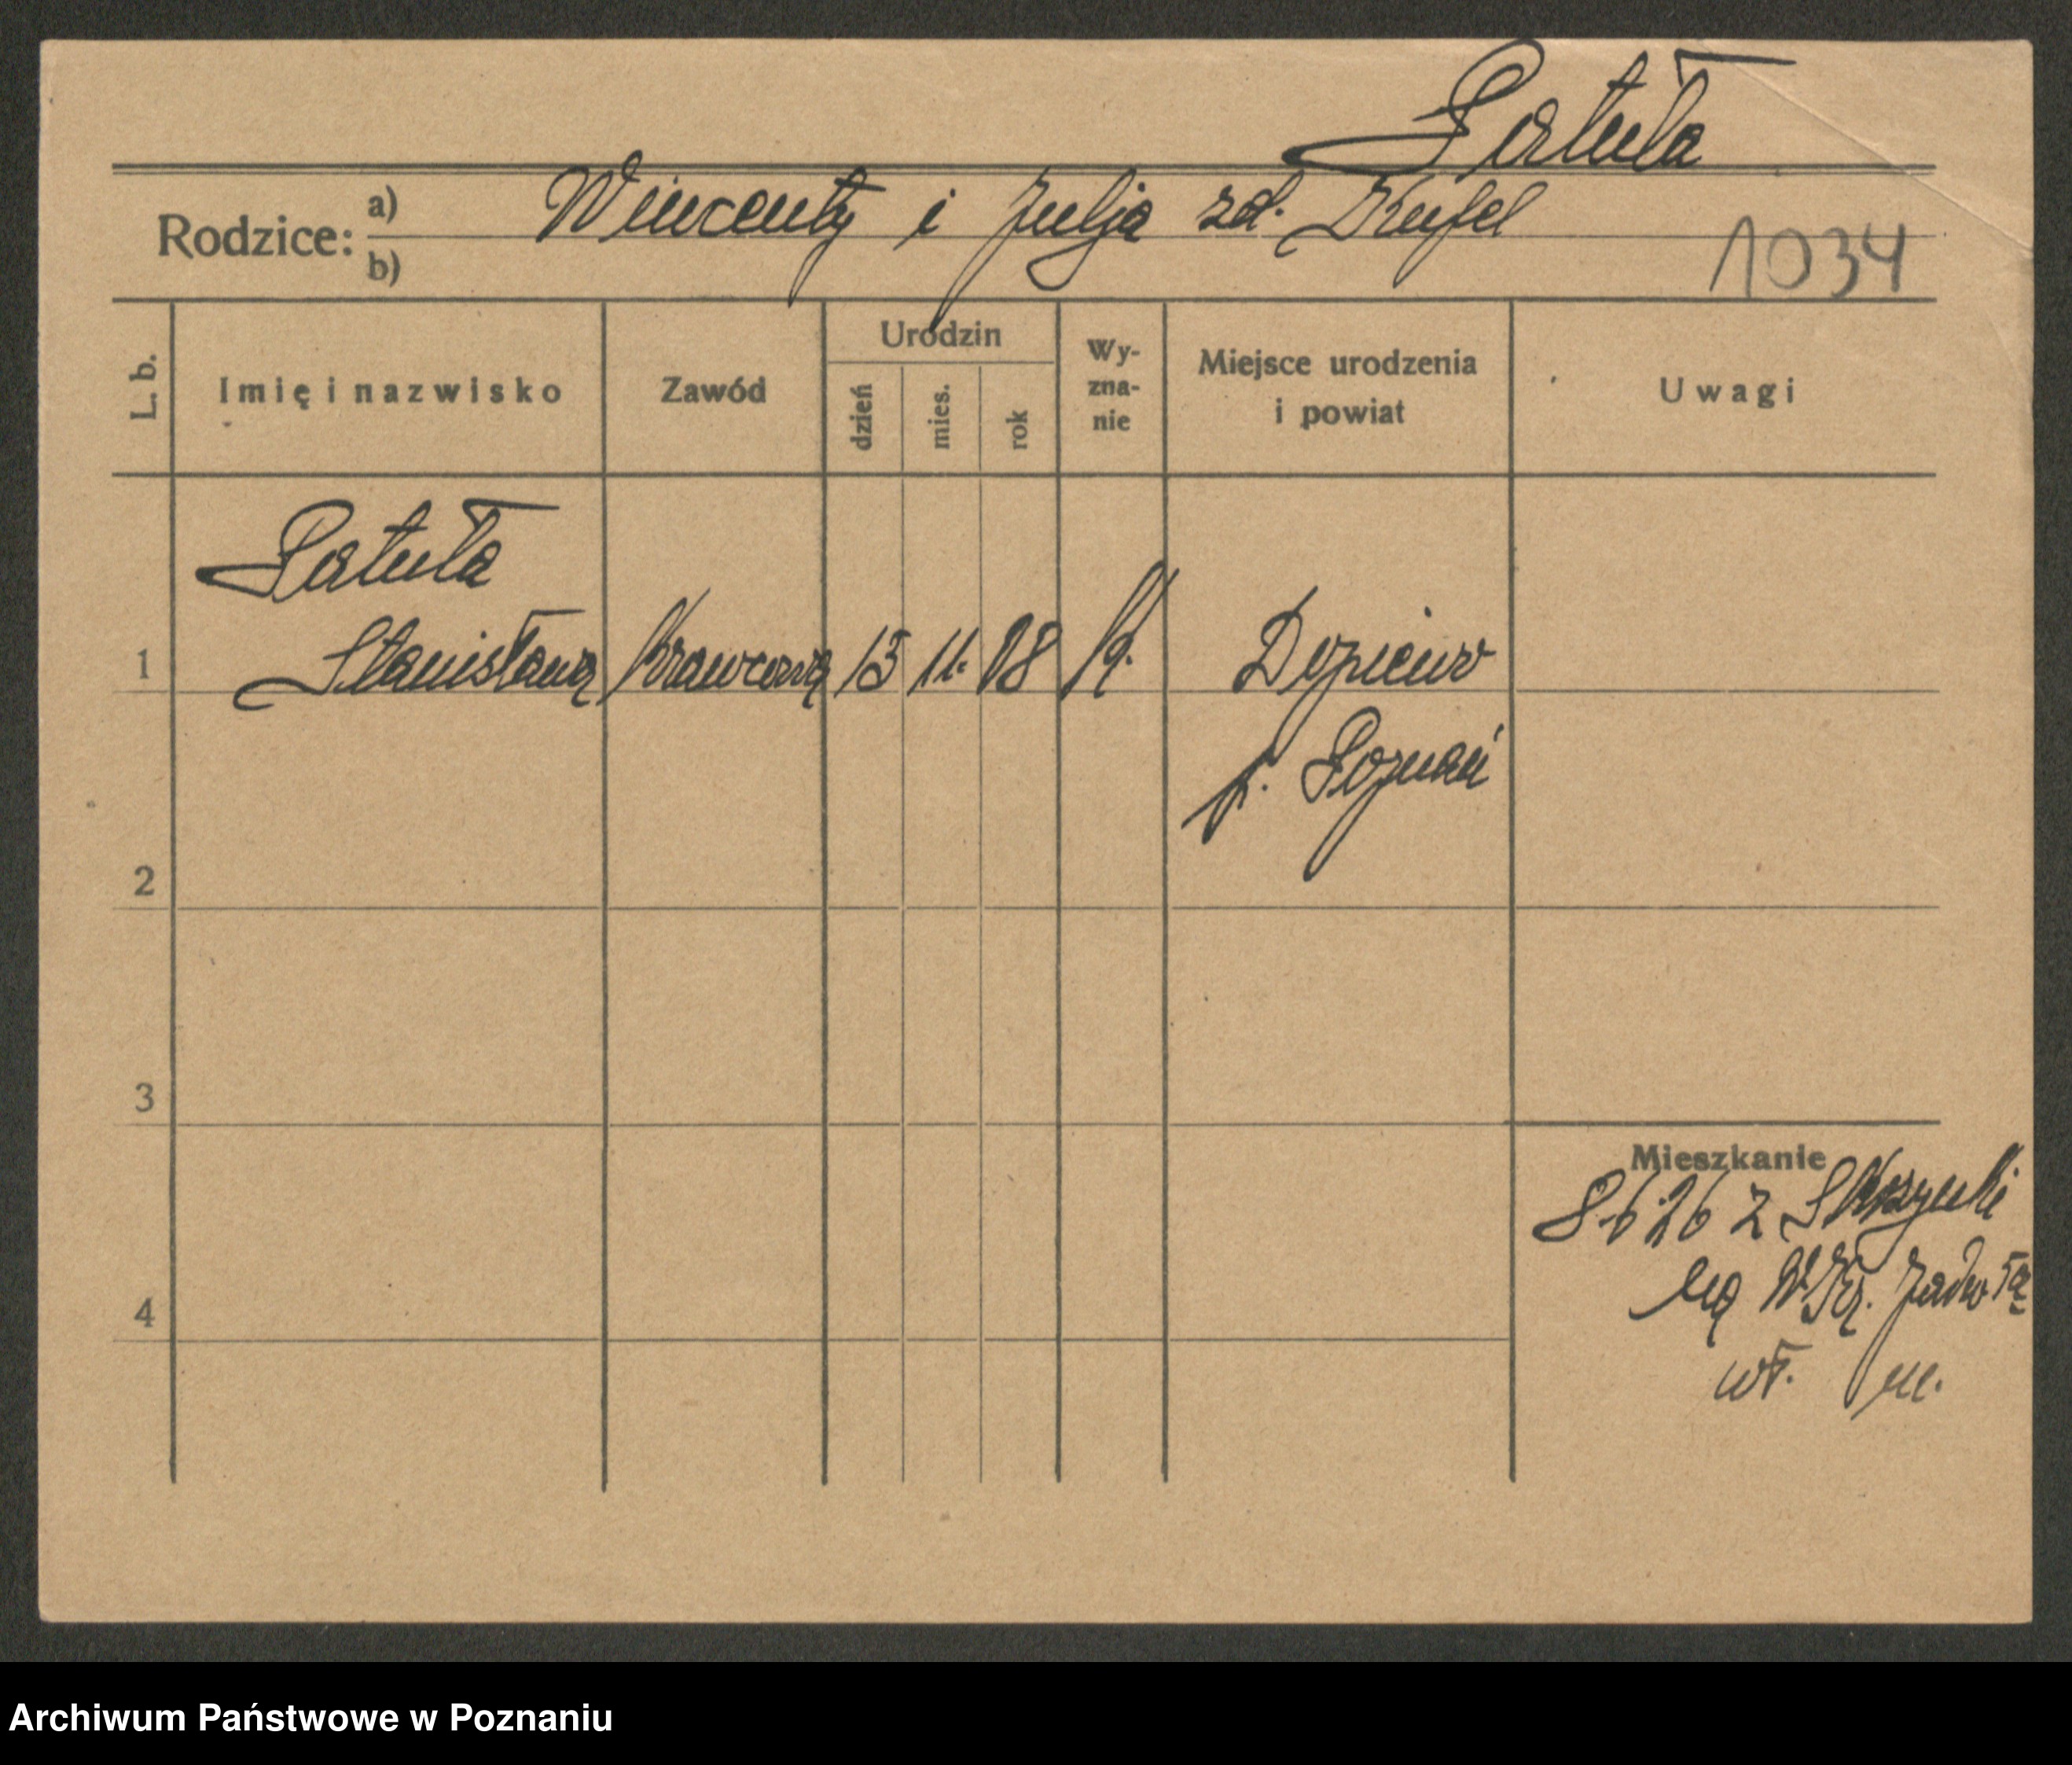 Patuła
Rodzice: a) Wincenty i Julja zd. Kufel
b)
1034
L. b. Imię i nazwisko Zawód Urodzin dzień mies. rok Wyznanie Miejsce urodzenia i powiat Uwagi
Patuła
1 Stanisława Krawcowa 15 11. 08 k. Dopiewo
p. Poznań
2
3
Mieszkanie
8.6.26 z
na
4
wł. m.
Archiwum Państwowe w Poznaniu